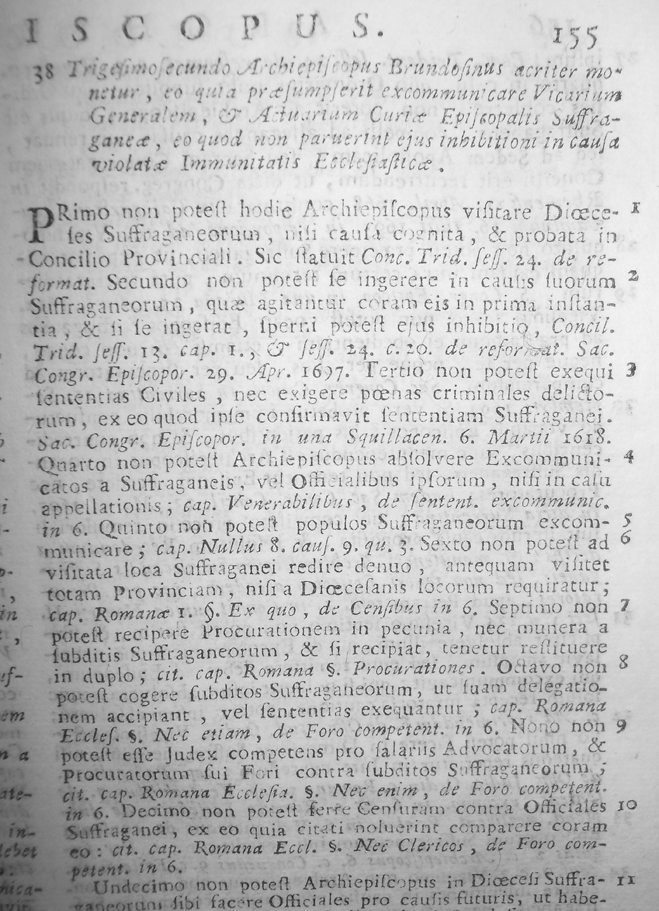 ISCOPUS. 155
38 Trigesimosecundo Archiepiſcopus Brundoſinus acriter mo-
netur, eo quia præſumpſerit excommunicare Vicarium
Generalem, & Actuarium Curiæ Epiſcopalis Suffra-
ganeæ, eo quod non paruerint ejus inhibitioni in cauſa
violatæ Immunitatis Eccleſiaſticæ.
PRimo non poteſt hodie Archiepiſcopus viſitare Diœce- 1
ſes Suffraganeorum, niſi cauſa cognita, & probata in
Concilio Provinciali. Sic ſtatuit Conc. Trid. ſeſſ. 24. de re-
format. Secundo non poteſt ſe ingerere in cauſis ſuorum 2
Suffraganeorum, quæ agitantur coram eis in prima inſtan-
tia, & ſi ſe ingerat, ſperni poteſt ejus inhibitio, Concil.
Trid. ſeſſ. 13. cap. 1., & ſeſſ. 24. c. 20. de reformat. Sac.
Congr. Epiſcopor. 29. Apr. 1697. Tertio non poteſt exequi 3
ſententias Civiles, nec exigere pœnas criminales delicto-
rum, ex eo quod ipſe confirmavit ſententiam Suffraganei.
Sac. Congr. Epiſcopor. in una Squillacen. 6. Martii 1618.
Quarto non poteſt Archiepiſcopus abſolvere Excommuni- 4
catos a Suffraganeis, vel Officialibus ipſorum, niſi in caſu
appellationis; cap. Venerabilibus, de ſentent. excommunic.
in 6. Quinto non poteſt populos Suffraganeorum excom- 5
municare; cap. Nullus 8. cauſ. 9. qu. 3. Sexto non poteſt ad 6
viſitata loca Suffraganei redire denuo, antequam viſitet
totam Provinciam, niſi a Diœceſanis locorum requiratur;
cap. Romanæ 1. §. Ex quo, de Cenſibus in 6. Septimo non 7
poteſt recipere Procurationem in pecunia, nec munera a
ſubditis Suffraganeorum, & ſi recipiat, tenetur reſtituere
in duplo; cit. cap. Romana §. Procurationes. Octavo non 8
poteſt cogere ſubditos Suffraganeorum, ut ſuam delegatio-
nem accipiant, vel ſententias exequantur; cap. Romana
Eccleſ. §. Nec etiam, de Foro competent. in 6. Nono non 9
poteſt eſſe Judex competens pro ſalariis Advocatorum, &
Procuratorum ſui Fori contra ſubditos Suffraganeorum;
cit. cap. Romana Eccleſia. §. Nec enim, de Foro competent.
in 6. Decimo non poteſt ferre Cenſuram contra Officiales 10
Suffraganei, ex eo quia citati noluerint comparere coram
eo: cit. cap. Romana Eccl. §. Nec Clericos, de Foro com-
petent. in 6.
Undecimo non poteſt Archiepiſcopus in Diœceſi Suffra- 11
ganeorum ſibi facere Officiales pro cauſis futuris, ut habe-